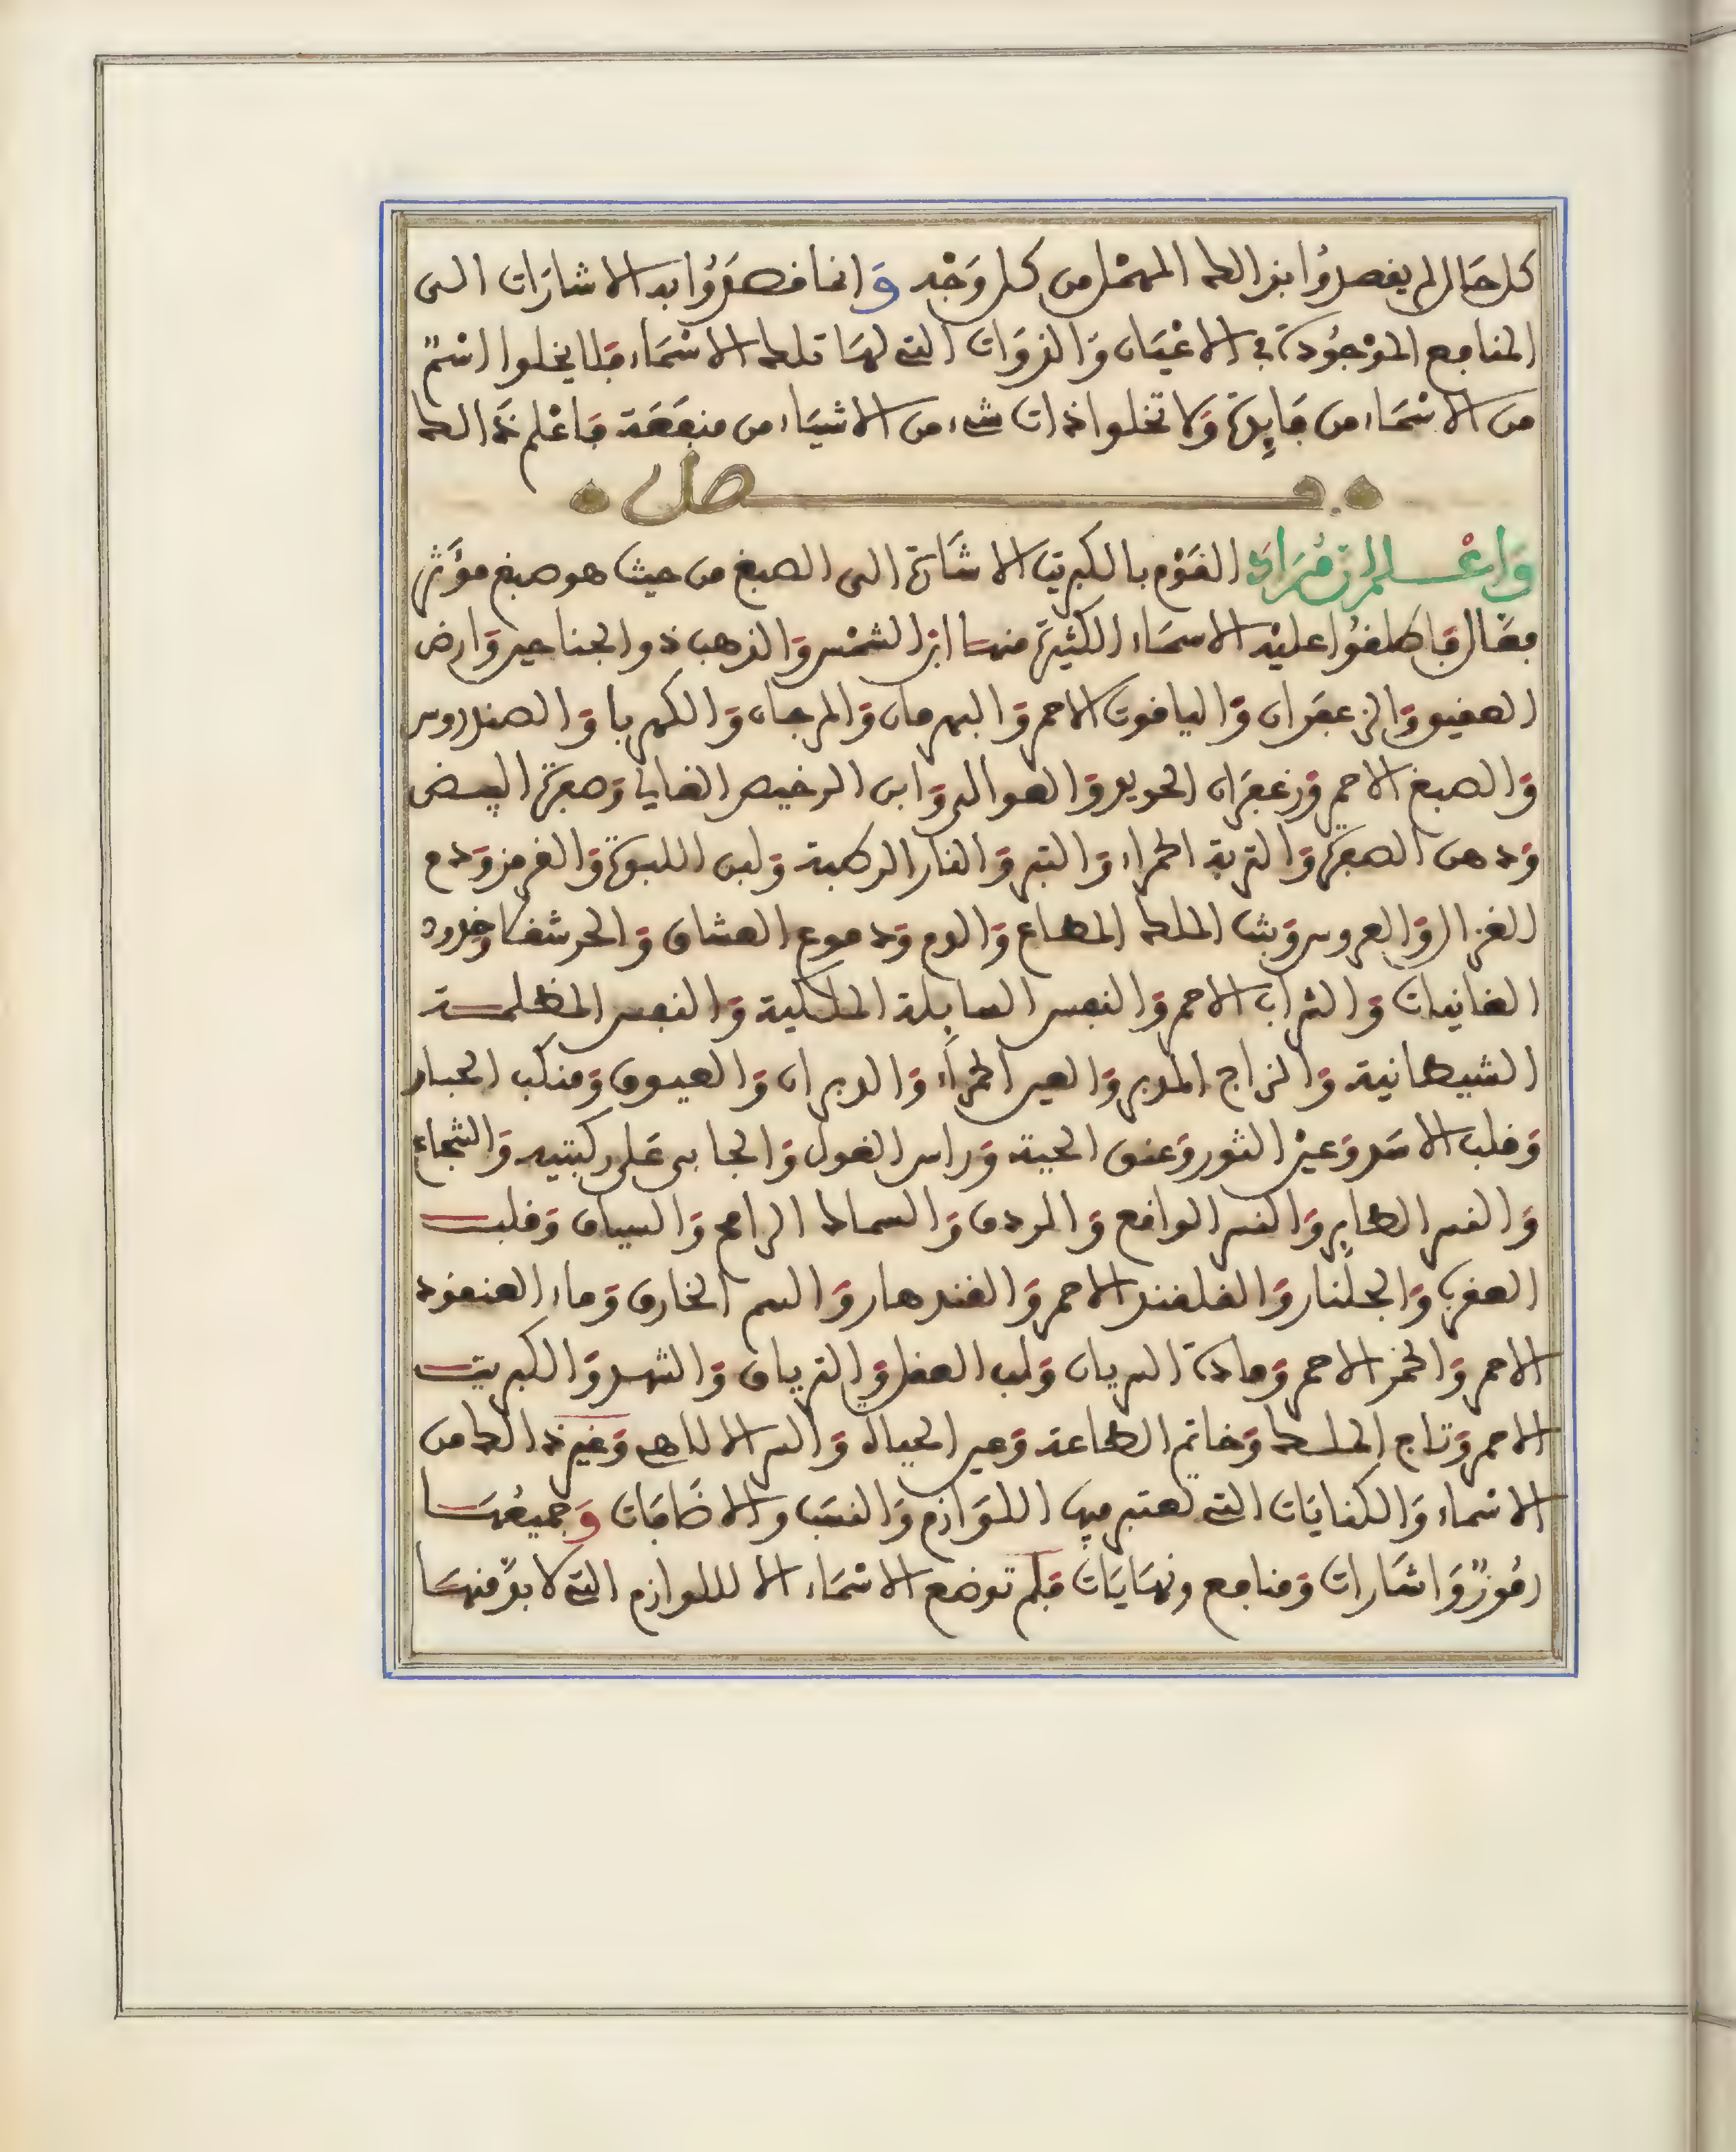 كل حَال لم يقصدُوا بذالك المهْمل من كل وَجْه وَانما قصَدُوا به الاشارَات الى
المنافع الموْجُودَة في الاعْيَان وَالذوَات التي لهَا تلك الاسْمَاء فلا يخلوا اسْمٌ
من الاسْمَاء من فَايِدة وَلا تخلوا ذات شيء من الاشيَاء من منفعَة فاعْلم ذَالك
فصل
وَاعْلم ان مُرَادَ القَوْم بالكبريت الاشَارة الى الصبغ من حيث هو صبغ مؤَثر
فعَّال فَاطلقُوا عليْه الاسمَاء الكثيرة منها ابن الشمْس وَالذهب ذو الجناحين وَارض
العقيق وَالزعفرَان وَالياقوت الاحمر وَالبهرمان وَالمرجان وَالكهربا وَالصندروس
وَالصبغ الاحمر وَزعفرَان الحديد وَالعوالى وَابن الرخيص الغالي وَصفرة البيض
وَدهن الصفرة وَالتربة الحمراء وَالتبر وَالنار الرطبة وَلبن اللبوة وَالقرمز وَدم
الغزال وَالعروس وَبنت الملك المطاع وَالدم وَدموع العشاق وَالحرشفا وَخدود
الغانيات وَالشراب الاحمر وَالنفس السايلة الملكية وَالنفس المظلمة
الشيطانية وَالزاج المدبر وَالعين الحمرَاء وَالدبران وَالعيوق وَمنكب الجبار
وَقلب الاسَد وَعين الثور وَعنق الحية وَراس الغول وَالجاثى عَلى ركبتيه وَالشجاع
وَالنسر الطاير وَالنسر الواقع وَالردف وَالسماك الرامح وَالسياف وَقلب
العقرب وَالجلنار وَالقلقند الاحمر وَالقندهار وَالسم الخارق وَماء العنقود
الاحمر وَالخمر الاحمر وَمادة السريان وَلب العقل وَالترياق وَالشهد وَالكبريت
الاحمر وَتاج الملك وَخاتم الطاعة وَعين الحياة وَالسر الالاهي وَغير ذالك من
الاسْماء وَالكنايَات التي تعتبر فيها اللوَازم وَالنسَب والاضَافَات وَجميعُهَا
رمُوزٌ وَاشَارات وَمنافع ونهَايَات فلم توضع الاسْمَاء الا لللوازم التي لا بدَّ منهَا